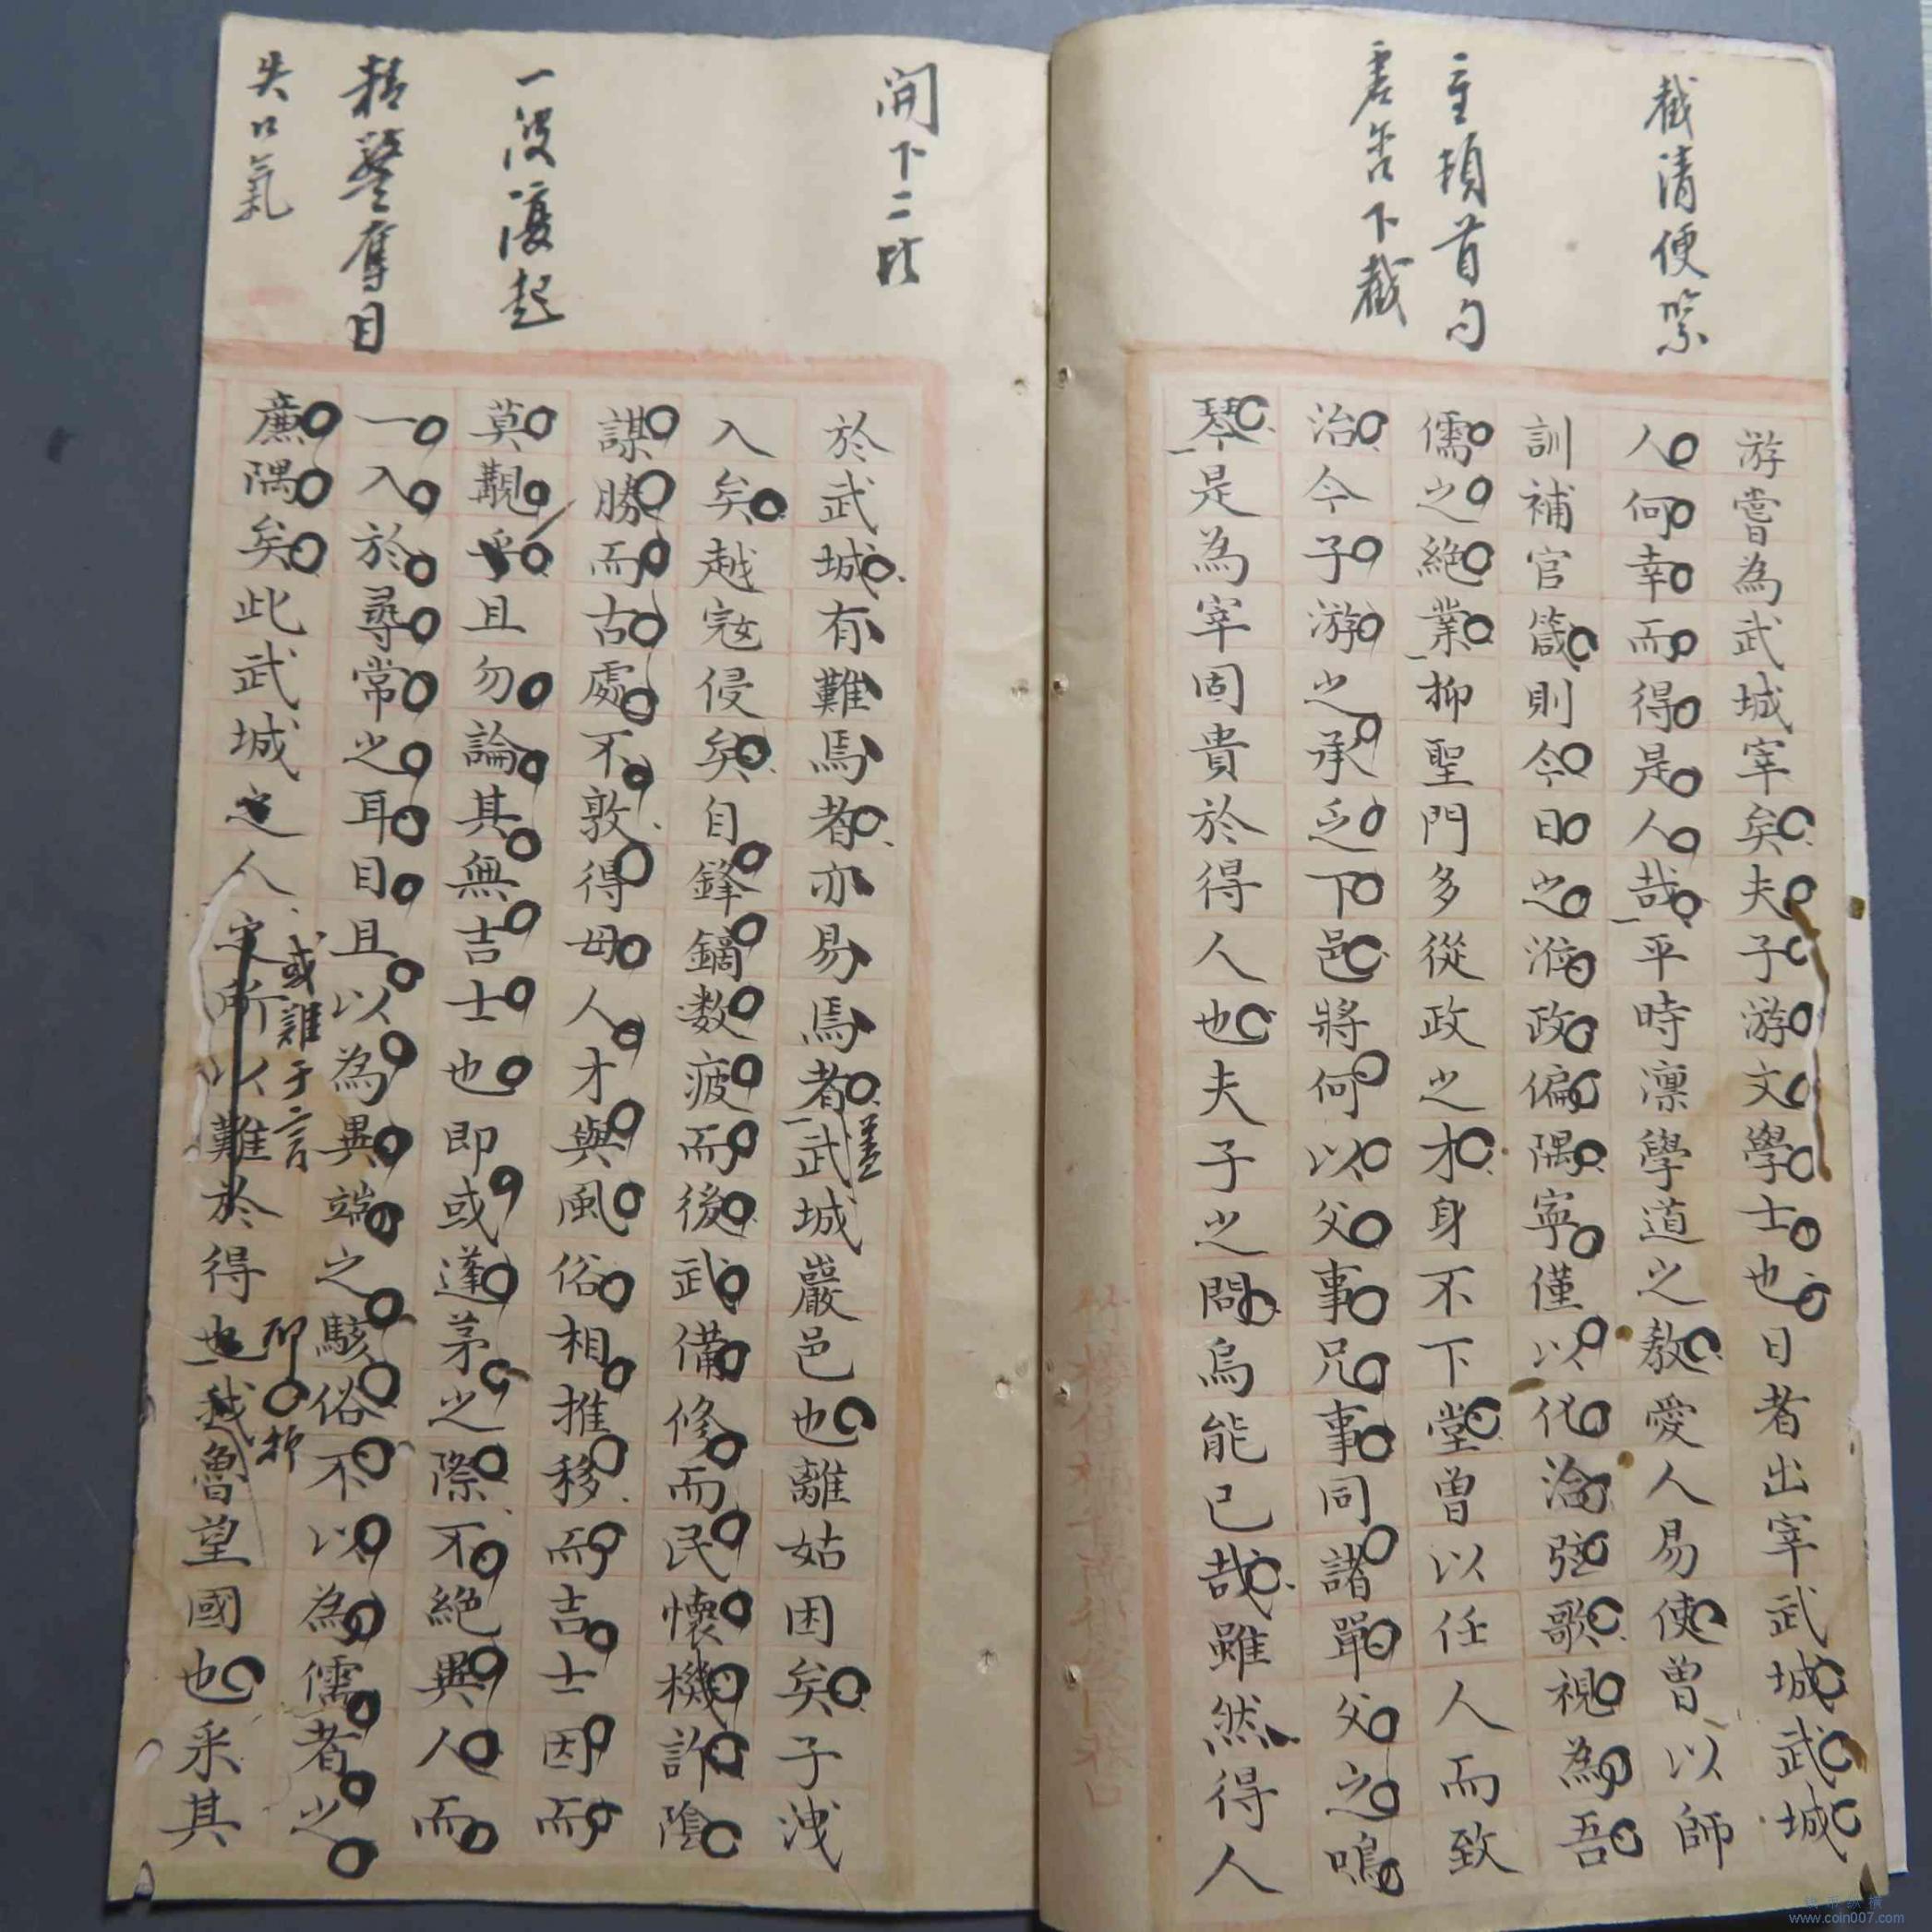 截清便緊
主頓首句
卷舍下截
游嘗為武城宰矣夫子游文學士也日者出宰武城武城
人何幸而得是人哉平時凜學道之教愛人易使曾以師
訓補官箴則今日之涖政偏隅寧僅以化淪弦歌視為吾
儒之絕業抑聖門多從政之才身不下堂曾以任人而致
治今子游之承乏下邑將何以父事兄事同諸單父之鳴
琴是為宰固貴於得人也夫子之問烏能已哉雖然得人
開下二股
一波復起
精警奪目
失口氣
於武城有難焉者亦易焉者武城嚴邑也離姑困矣子洩
蓋
入矣越寇侵矣自鋒鏑數疲而後武備修而民懷機詐陰
謀勝而古處不敦得毋人才與風俗相推移而吉士因而
莫覯乎且勿論其無吉士也即或蓬茅之際不絕異人而
一入於尋常之耳目且以為異端之駭俗不以為儒者之
或難于言
即
抑
廉隅矣此武城之人定所以難於得也我魯望國也采其
www.coin007.com